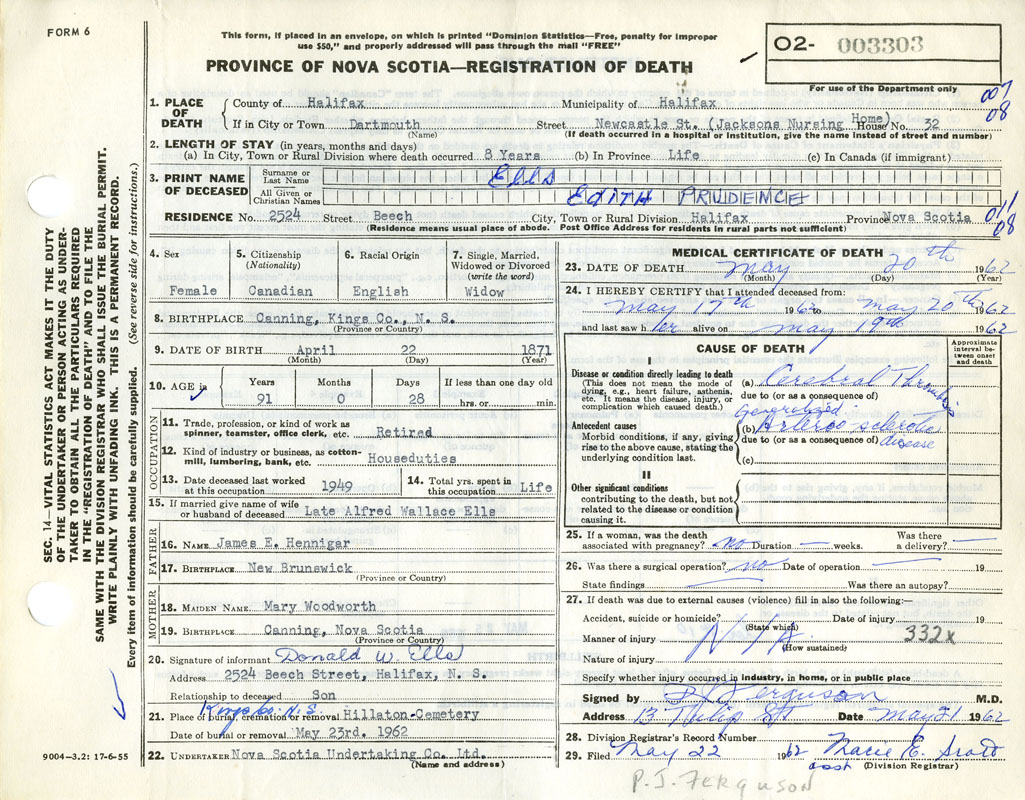 FORM 6
This form, if placed in an envelope, on which is printed "Dominion Statistics—Free, penalty for improper
use $50," and properly addressed will pass through the mail "FREE"
PROVINCE OF NOVA SCOTIA—REGISTRATION OF DEATH
02- 003303
For use of the Department only
007
08
1. PLACE OF DEATH
County of Halifax Municipality of Halifax
If in City or Town Dartmouth Street Newcastle St. (Jacksons Nursing Home) House No. 32
(Name) (If death occurred in a hospital or institution, give the name instead of street and number)
2. LENGTH OF STAY (in years, months and days)
(a) In City, Town or Rural Division where death occurred 8 Years (b) In Province Life (c) In Canada (if immigrant)
3. PRINT NAME OF DECEASED
Surname or Last Name Ells
All Given or Christian Names EDITH PRUDENCE
RESIDENCE No. 2524 Street Beech City, Town or Rural Division Halifax Province Nova Scotia
011
08
(Residence means usual place of abode. Post Office Address for residents in rural parts not sufficient)
4. Sex
Female
5. Citizenship
(Nationality)
Canadian
6. Racial Origin
English
7. Single, Married,
Widowed or Divorced
(write the word)
Widow
8. BIRTHPLACE Canning, Kings Co., N. S.
(Province or Country)
9. DATE OF BIRTH April 22 1871
(Month) (Day) (Year)
10. AGE in
Years Months Days If less than one day old
91 0 28 hrs. or min.
OCCUPATION
11. Trade, profession, or kind of work as
spinner, teamster, office clerk, etc. Retired
12. Kind of industry or business, as cotton-
mill, lumbering, bank, etc. Houseduties
13. Date deceased last worked
at this occupation 1949
14. Total yrs. spent in
this occupation Life
15. If married give name of wife
or husband of deceased Late Alfred Wallace Ells
FATHER
16. NAME James E. Hennigar
17. BIRTHPLACE New Brunswick
(Province or Country)
MOTHER
18. MAIDEN NAME. Mary Woodworth
19. BIRTHPLACE Canning, Nova Scotia
(Province or Country)
20. Signature of informant Donald W. Ells
Address 2524 Beech Street, Halifax, N. S.
Relationship to deceased Son
Kings Co. N.S.
21. Place of burial, cremation or removal Hillaton-Cemetery
Date of burial or removal May 23rd. 1962
22. UNDERTAKER Nova Scotia Undertaking Co. Ltd.
(Name and address)
MEDICAL CERTIFICATE OF DEATH
23. DATE OF DEATH May 20th 1962
(Month) (Day) (Year)
24. I HEREBY CERTIFY that I attended deceased from:
May 17th 1962 to May 20th 1962
and last saw her alive on May 19th 1962
CAUSE OF DEATH
Approximate
interval be-
tween onset
and death
I
Disease or condition directly leading to death
(This does not mean the mode of
dying, e.g., heart failure, asthenia,
etc. It means the disease, injury, or
complication which caused death.)
(a) Cerebral Thrombosis
due to (or as a consequence of)
Antecedent causes
Morbid conditions, if any, giving
rise to the above cause, stating the
underlying condition last.
Generalized
(b) Arterio-sclerotic
due to (or as a consequence of) disease
(c)
II
Other significant conditions
contributing to the death, but not
related to the disease or condition
causing it.
25. If a woman, was the death
associated with pregnancy? no Duration — weeks. Was there
a delivery? —
26. Was there a surgical operation? no Date of operation — 19
State findings — Was there an autopsy?
27. If death was due to external causes (violence) fill in also the following:—
Accident, suicide or homicide? Date of injury 19
(State which)
Manner of injury N/A 332x
(How sustained)
Nature of injury
Specify whether injury occurred in industry, in home, or in public place
Signed by P J Ferguson M.D.
Address 13 Tulip St Date May 21 1962
28. Division Registrar's Record Number
29. Filed May 22 1962 Macie E. Scott
asst (Division Registrar)
P.J. Ferguson
SEC. 14—VITAL STATISTICS ACT MAKES IT THE DUTY
OF THE UNDERTAKER OR PERSON ACTING AS UNDER-
TAKER TO OBTAIN ALL THE PARTICULARS REQUIRED
IN THE "REGISTRATION OF DEATH" AND TO FILE THE
SAME WITH THE DIVISION REGISTRAR WHO SHALL ISSUE THE BURIAL PERMIT.
WRITE PLAINLY WITH UNFADING INK. THIS IS A PERMANENT RECORD.
Every item of information should be carefully supplied. (See reverse side for instructions.)
9004—3.2: 17-6-55